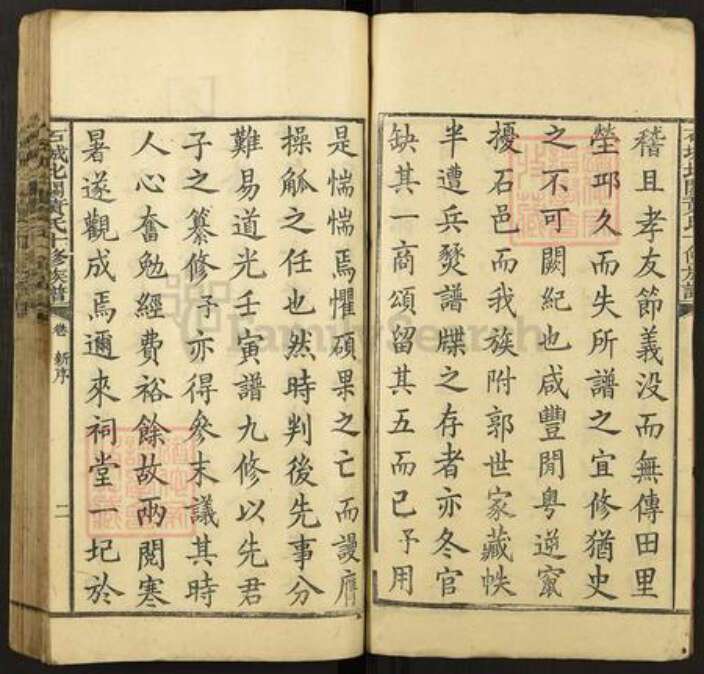 稽且孝友節義没而無傳田里
塋邱久而失所譜之宜修猶史
之不可闕紀也咸豐閒粵逆竄
擾石邑而我族附郭世家藏帙
半遭兵燹譜牒之存者亦冬官
缺其一商頌留其五而已予用
是惴惴焉懼碩果之亡而謾膺
操觚之任也然時判後先事分
難易道光壬寅譜九修以先君
子之纂修予亦得參末議其時
人心奮勉經費裕餘故兩閱寒
暑遂觀成焉邇來祠堂一圯於
石城北關黃氏十修族譜
卷 新序
二
FamilySearch